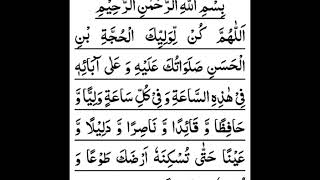 بِسْمِ اللهِ الرَّحْمٰنِ الرَّحِيْمِ
اَللّٰهُمَّ كُنْ لِّوَلِيِّكَ الْحُجَّةِ بْنِ
الْحَسَنِ صَلَوَاتُكَ عَلَيْهِ وَ عَلٰى آبَائِهٖ
فِيْ هٰذِهِ السَّاعَةِ وَ فِيْ كُلِّ سَاعَةٍ وَلِيًّا وَّ
حَافِظًا وَّ قَائِدًا وَّ نَاصِرًا وَّ دَلِيْلًا وَّ
عَيْنًا حَتّٰى تُسْكِنَهٗ اَرْضَكَ طَوْعًا وَ